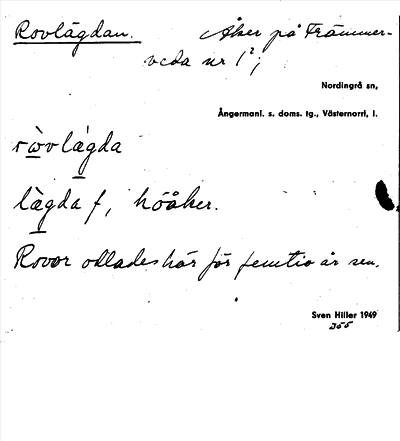 Rovlägdan. Åker på Främmer-
veda nr 1²;
Nordingrå sn,
Ångermanl. s. doms. tg., Västernorrl. l.
ròvlägda
lägda f, höåker.
Rovor odlades här för femtio år sen.
Sven Hiller 1949